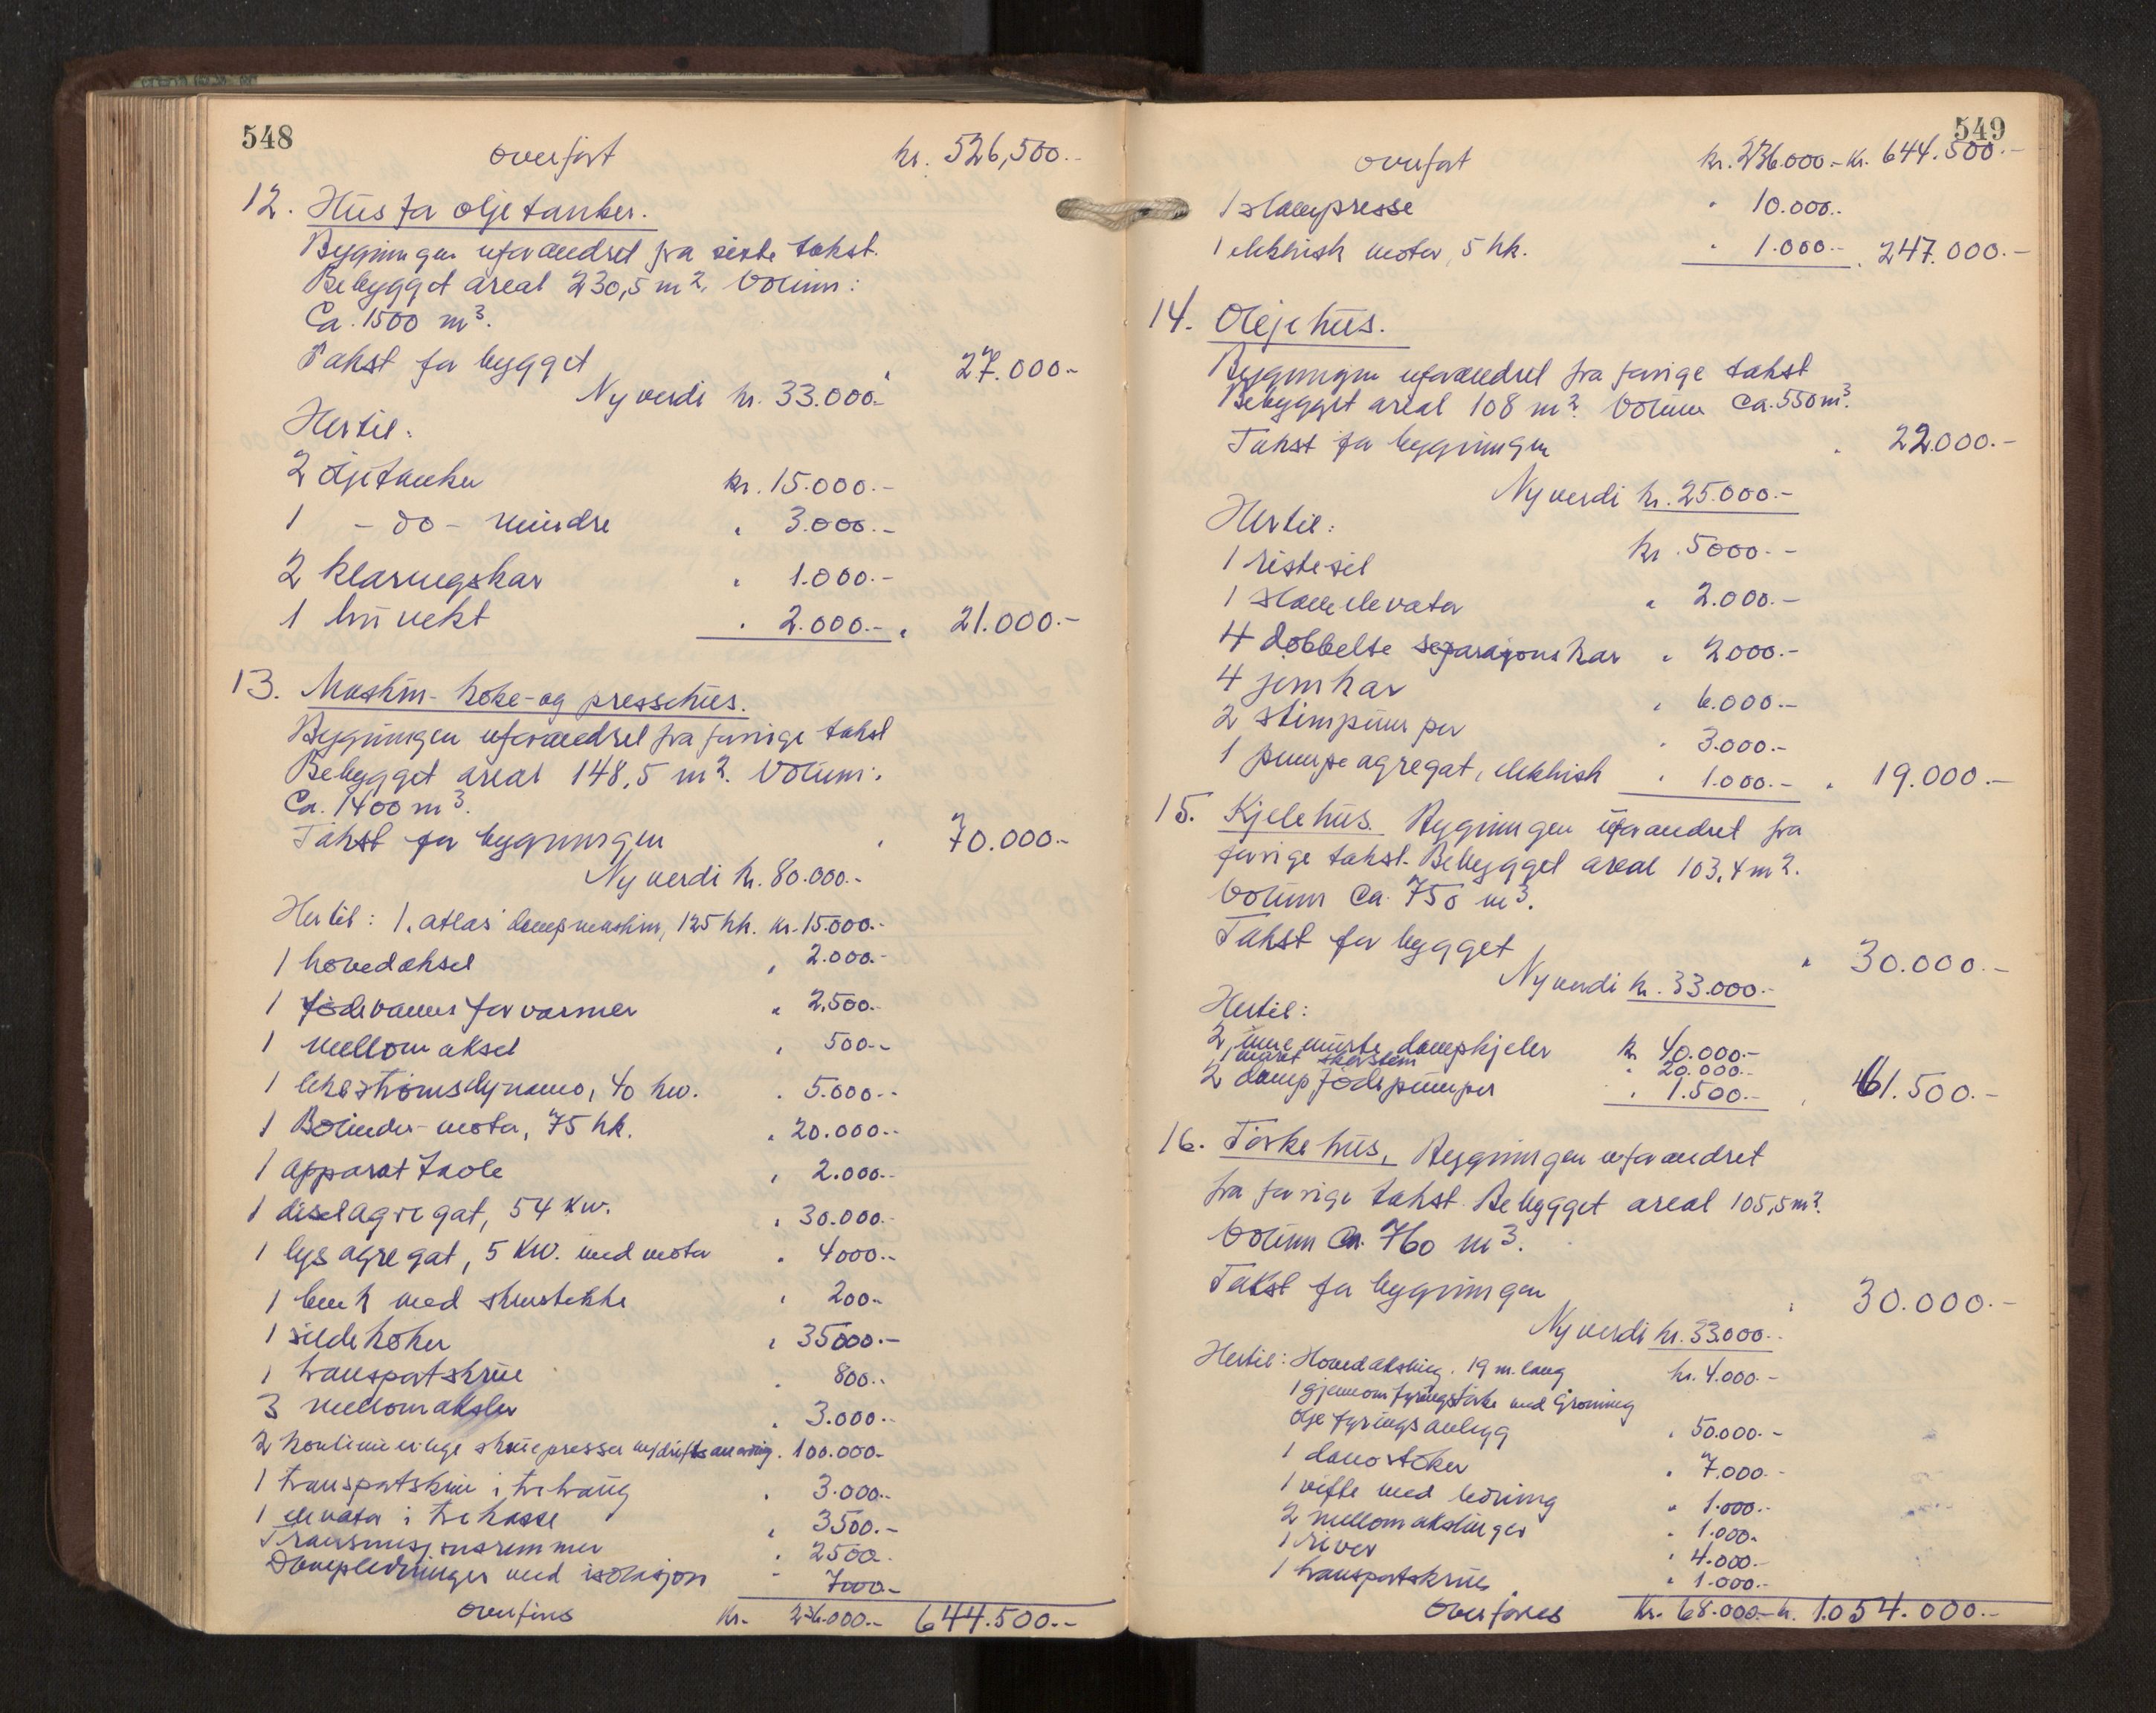 548
overført kr. 526,500.-
12. Hus for oljetanker.
Bygningen uforandret fra siste takst.
Bebygget areal 230,5 m2. Volum:
Ca. 1500 m3.
Takst for bygget " 27.000.-
Ny verdi kr. 33.000.-
Hertil:
2 oljetanker kr. 15.000.-
1 - do - mindre " 3.000.-
2 klaringskar " 1.000.-
1 bruvekt " 2.000.- " 21.000.-
13. Maskin- koke- og pressehus.
Bygningen uforandret fra forrige takst
Bebygget areal 148,5 m2. Volum:
Ca. 1400 m3.
Takst for bygningen " 70.000.-
Ny verdi kr. 80.000.-
Hertil: 1. atlas dampmaskin, 125 hk. kr. 15.000.-
1 hovedaksel " 2.000.-
1 fødevanns forvarmer " 2,500.-
1 mellomaksel " 500.-
1 likestrømsdynamo, 40 kw. " 5.000.-
1 Bolinder-motor, 75 hk. " 20.000.-
1 apparattavle " 2.000.-
1 diselagregat, 54 kw. " 30.000.-
1 lysagregat, 5 KW. med motor " 4000.-
1 benk med skrustikke " 200.-
1 sildekoker " 35000.-
1 transportskrue " 800.-
3 mellomaksler " 3.000.-
2 kontinuerlige skruepresser m/driftsanordning " 100.000.-
1 transportskrue i tretraug " 3.000.-
1 elevator i trekasse " 3500.-
Transmisjonsremmer " 2500.-
Dampledninger med isolasjon " 7000.-
overføres kr. 236.000.- 644.500.-
549
overført kr. 236.000.- kr. 644.500.-
1 slampresse " 10.000.-
1 elektrisk motor, 5 hk. " 1.000.- " 247.000.-
14. Oljehus.
Bygningen uforandret fra forrige takst
Bebygget areal 108 m2. Volum ca. 550 m3.
Takst for bygningen " 22.000.-
Ny verdi kr. 25.000.-
Hertil:
1 ristesil kr. 5000.-
1 slamelevator " 2.000.-
4 dobbelte separasjonskar " 2000.-
4 jernkar " 6.000.-
2 stimpumper " 3.000.-
1 pumpeagregat, elektrisk " 1.000.- " 19.000.-
15. Kjelehus. Bygningen uforandret fra
forrige takst. Bebygget areal 103,4 m2.
Volum Ca. 750 m3.
Takst for bygget " 30.000.-
Ny verdi kr. 33.000.-
Hertil:
2 innemurte dampkjeler kr 40.000.-
1 muret skorstein " 20.000.-
2 dampfødepumper " 1.500.- " 61.500.-
16. Tørkehus. Bygningen uforandret
fra forrige takst. Bebygget areal 105,5 m2.
Volum Ca. 760 m3.
Takst for bygningen " 30.000.-
Ny verdi kr. 33.000.-
Hertil: Hovedaksling. 19 m. lang kr. 4.000.-
1 gjennomfyringstørke med Grønning
oljefyringsanlegg " 50.000.-
1 danostoker " 7.000.-
1 vifte med ledning " 1.000.-
2 mellomakslinger " 1.000.-
1 river " 4.000.-
1 transportskrue " 1.000.-
overføres kr. 68.000.- kr. 1.054.000.-